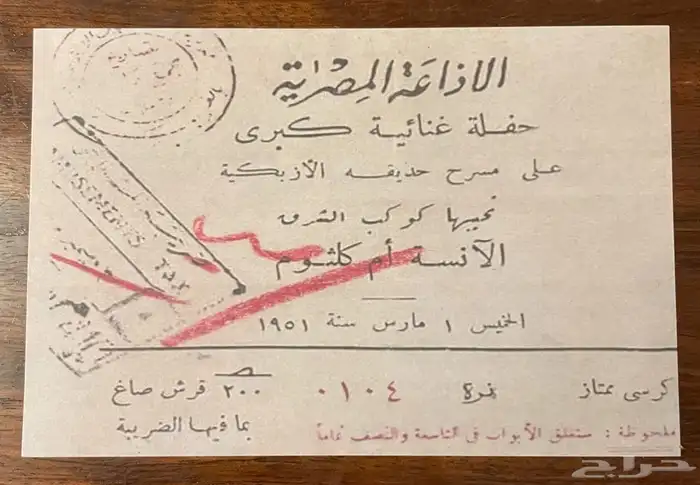 الاذاعة المصرية
حفلة غنائية كبرى
على مسرح حديقه الأزبكية
تحييها كوكب الشرق
الآنسة أم كلثوم
الخميس ١ مارس سنة ١٩٥١
كرسى ممتاز
نمرة ٠١٠٤
٢٠٠ قرش صاغ
بما فيها الضريبة
ملحوظة : ستغلق الأبواب فى التاسعة والنصف تماماً
AMUSEMENTS TAX
حراج